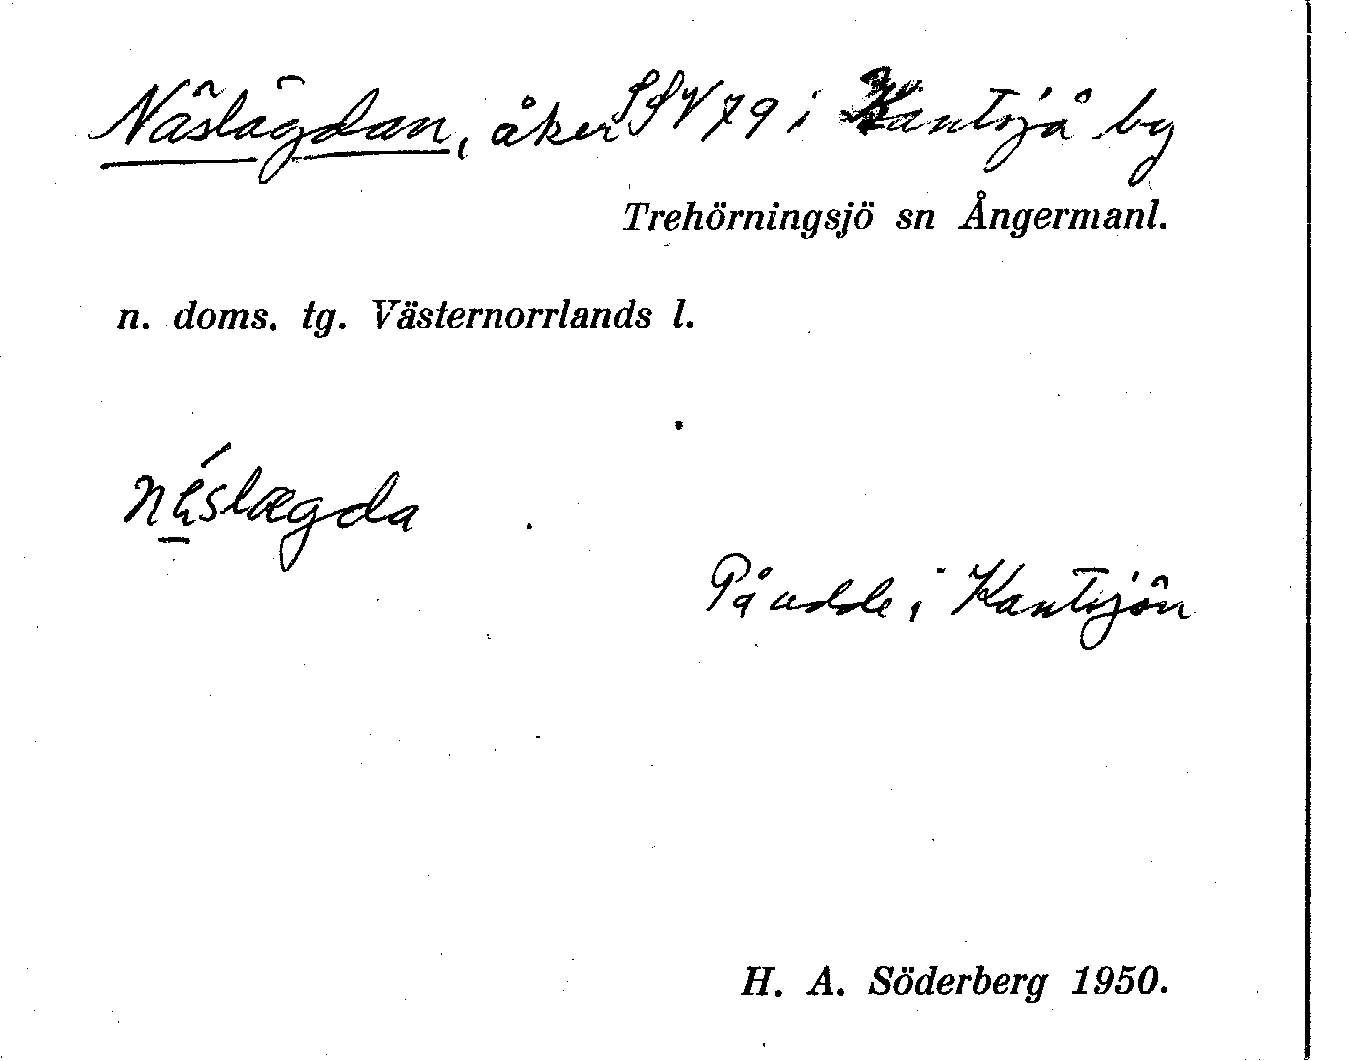 Näslägdan, åker SSV 79 i Kantsjö by
Trehörningsjö sn Ångermanl.
n. doms. tg. Västernorrlands l.
néslægda
På udde i Kantsjön
H. A. Söderberg 1950.